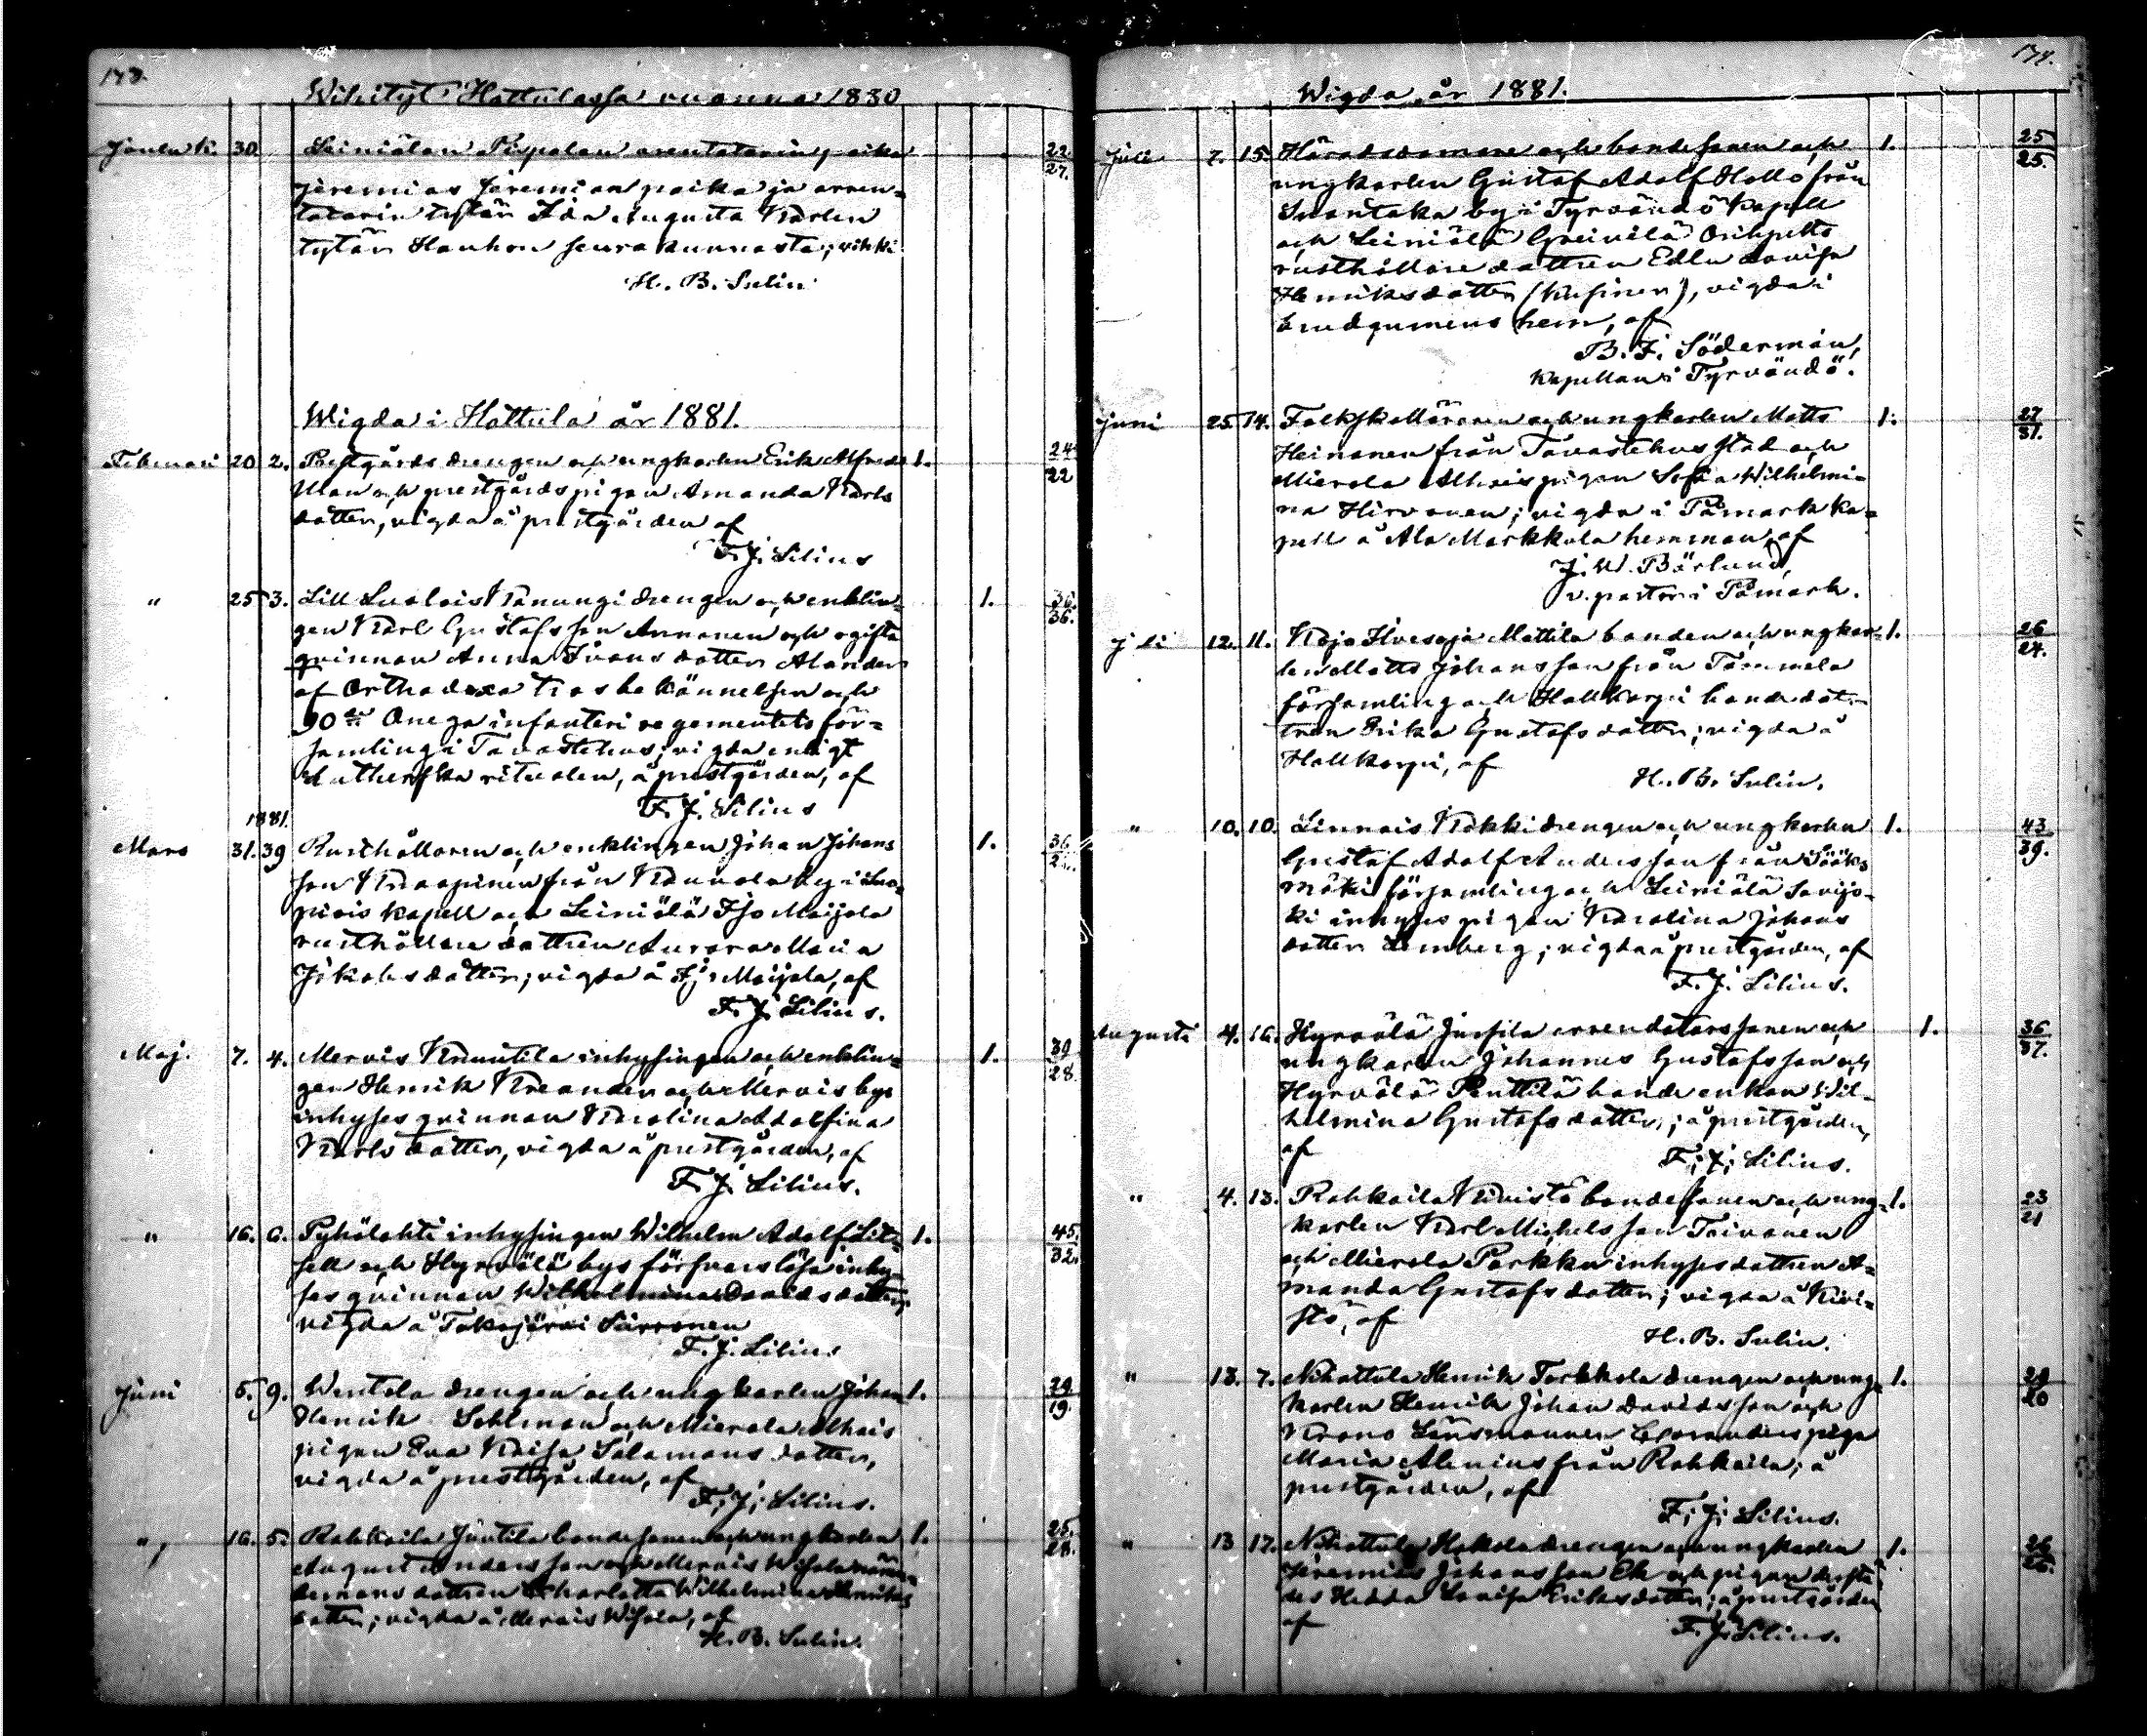 173.
Wihityt Hattulassa vuonna 1880
Jouluk. 30. Leiniälän arentatorin poika 22/27.
Jeremias Jeremian poika ja arren-
tatorin tytär Ida Augusta Karlen
tytär Hauhon seurakunnasta; vihki
H. B. Sulin
Wigda i Hattula år 1881.
Februari 20 2. Prestgårds drengen och ungkarlen Erik Alfred 1. 24/22
och prestgårdspigan Amanda Karls
dotter, vigda å prestgården af
F. J. Lilius
" 25 3. Lill Luolais drengen och enklin- 1. 36/36.
gen Karl Gustafsson Annanen och ogifta
qvinnan Anna Ivans dotter
af Orthodoxa trosbekännelsen och
90de Onega infanteri regementets för-
samling i Tavastehus; vigda enligt
Lutherska ritualen, å prestgården, af
F. J. Lilius
1881.
Mars 31. 39 Rusthållaren och enklingen Johan Johans 1.
son från by i Luo-
piois kapell och Leiniälä Iso Maijala
rusthållare dottren Aurora Maria
Jakobsdotter; vigda å Iso Maijala, af
F. J. Lilius.
Maj. 7. 4. Mervis Knuutila inhysingen och enklin- 1. 39/28.
gen Henrik och Mervis bys
inhyses qvinnan Karolina Adolfina
Karlsdotter, vigda å prestgården, af
F. J. Lilius.
" 16. 6. Pyhälahti inhysingen Wilhelm Adolf Lit- 1. 45/32.
sell och Hyrvälä bys försvarslösa inhy-
ses qvinnan Wilhelmina Davidsdotter,
vigda å Takajärvi
F. J. Lilius
Juni 5. 9. drengen och ungkarlen Johan 1. 29/19.
Henrik Sahlman och Mierola Alhais
pigan Eva Kaisa Salamons dotter,
vigda å prestgården, af
F. J. Lilius.
" 16. 5. Rahkoila Juutila bondesonen och ungkarlen 1. 25./28.
August Andersson och Mervis Wihola näm-
demans dottren Charlotta Wilhelmina Henriks
dotter; vigda å Mervis Wihola, af
H. B. Sulin.
174.
Wigda år 1881.
Juli 7. 15. Häradsdomare och bondesonen och 1. 25/25.
ungkarlen Gustaf Adolf Hallo från
Suontaka by i Tyrvändö kapell
och Leiniälä
rusthållare dottren Edla Lovisa
Henriksdotter (Kusiner), vigda i
brudgumens hem, af
B. F. Söderman,
Kapellan i Tyrvändö.
Juni 25 14. Folkskolläraren och ungkarlen Matts 1. 27/31.
Heinonen från Tavastehus stad och
Mierola Alhais pigan Sofia Wilhelmi-
na Hirvonen; vigda i Påmark ka-
pell å Ala Markkula hemman, af
J. W. Bärlund,
v. pastor i Påmark.
Juli 12. 11. Ilvesoja Mattila bonden och ungkar- 1. 26/24.
len Matts Johansson från Tammela
församling och Hallkorpi bonde dot-
tren Erika Gustafsdotter; vigda å
Hallkorpi, af
H. B. Sulin.
" 10. 10. Linnais Kokki drengen och ungkarlen 1. 43/39.
Gustaf Adolf Andersson från Sääks
mäki församling och Leiniälä Savijo-
ki inhyses pigan Karolina Johans
dotter Lemberg; vigda å prestgården, af
F. J. Lilius.
Augusti 4. 16. Hyrvälä Jussila arrendators sonen och 1. 36/37.
ungkarlen Johannes Gustafsson och
Hyrvälä Penttilä bonde enkan Wil-
helmina Gustafsdotter; å prestgården,
af F. J. Lilius.
" 4. 13. Rahkoila Kivistö bondesonen och ung- 1. 23/21
karlen Karl Michelsson Toivonen
och Mierola Parkku inhysesdottren A-
manda Gustafsdotter; vigda å Kivi-
stö, af
H. B. Sulin.
" 13. 7. Nihattula Henrik Torkkola drengen och ung- 1.
karlen Henrik Johan Davidsson och
Länsmannen piga
Maria Alenius från Rahkoila; å
prestgården, af
F. J. Lilius.
" 13 17. Nihattula Hakola drengen och ungkarlen 1. 26/26.
Jeremias Johansson Ek och pigan
Hedda Lovisa Eriksdotter; å prestgården
af F. J. Lilius.